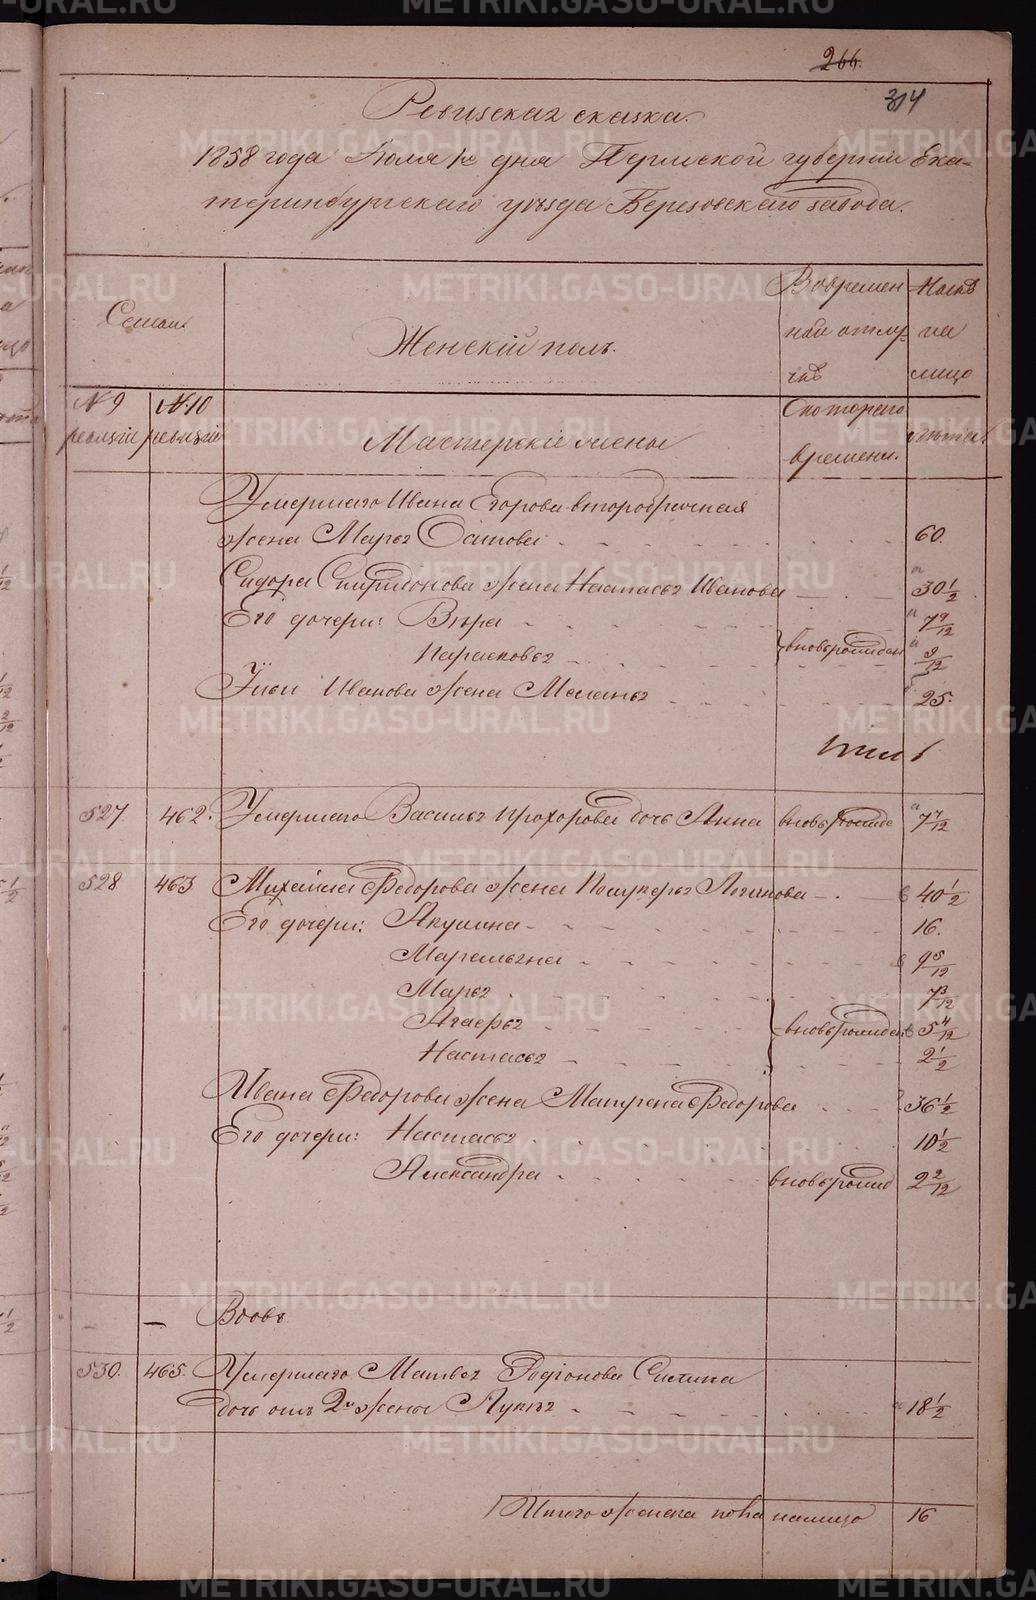 266.
314
Ревизская сказка.
1858 года Июля 1го дня Пермской губернии Ека-
теринбургскаго уѣзда Березовскаго завода.
Семьи
Женскій полъ.
Во времен
ной отлу-
чкѣ
Нали
на
лицо
№ 9 ревизіи
№ 10 ревизіи
Мастерскіе жены
Съ котораго
времени.
лѣта.
Умершаго Ивана Егорова второбрачная
жена Марья Осипова 60.
Сидора Спиридонова жена Настасья Иванова 30 1/2
Его дочери: Вѣра 7 9/12
Парасковья вновьрожден 9/12
Ильи Иванова жена Маланья 25.
527 462. Умершаго Василья Прохорова дочь Анна вновьрожде 7 7/12
528 463 Михайла Федорова жена Лукерья Логинова 40 1/2
Его дочери: Акулина 16.
Маремьяна 9 5/12
Марья 7 3/12
Агафья вновьрожден 5 4/12
Настасья 2 1/2
Ивана Федорова жена Матрена Федорова 36 1/2
Его дочери: Настасья 10 1/2
Александра вновьрожд 2 2/12
— Вдовъ
530. 465. Умершаго Матвея Родіонова Силина
дочь отъ 2й жены Лукья 18 1/2
Итого женска пола налицо 16
METRIKI.GASO-URAL.RU